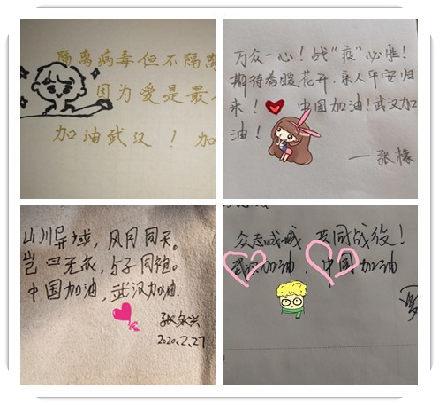 隔离病毒但不隔离
因为爱是最
加油武汉！加
万众一心！战"疫"必胜！
期待春暖花开，亲人平安归
来！中国加油！武汉加
油！
山川异域，风月同天。
岂曰无衣，与子同袍。
中国加油，武汉加油
2020.2.27
众志成城 共同战役！
武汉加油，中国加油